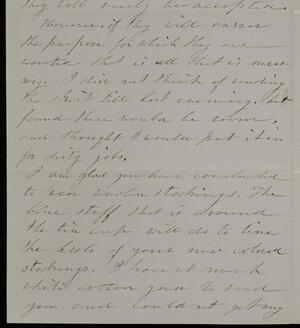 they will surely be accepted.
However, if they will answer
the purpose for which they are
wanted that is all that is neces-
sary. I did not think of sending
the skirt till last evening, but
found there would be room,
and thought I would put it in
for dirty jobs.
I am glad you have concluded
to wear woolen stockings. The
blue stuff that is around
the tin cup will do to line
the heels of your new colored
stockings. I have not much
white cotton yarn to send
you and could not get any